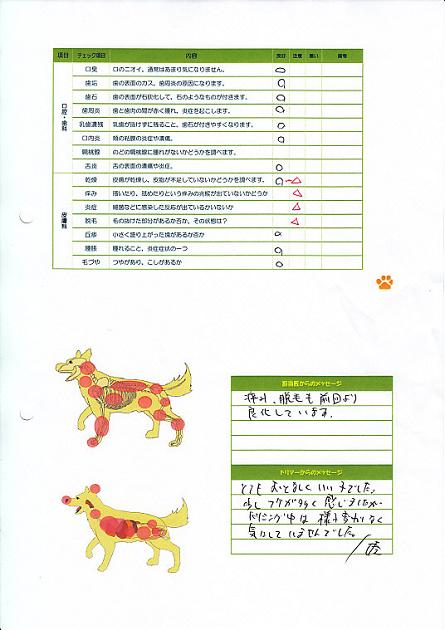 項目 チェック項目 内容 良好 注意 悪い 備考
口腔・歯科
口臭 口のニオイ。通常はあまり気になりません。
歯垢 歯の表面のカス。歯周炎の原因になります。
歯石 歯の表面が石灰化して、石のようなものが付きます。
歯周炎 歯と歯肉の間が赤く腫れ、炎症を起こします。
乳歯遺残 乳歯が抜けずに残ること。歯石が付きやすくなります。
口内炎 頬の粘膜の炎症や潰瘍。
扁桃腺 のどの扁桃腺に腫れがないかどうかを調べます。
舌炎 舌の表面の潰瘍や炎症。
皮膚科
乾燥 皮膚が乾燥し、皮脂が不足していないかどうかを調べます。
痒み 掻いたり、舐めたりという痒みの兆候が出ていないかどうか
炎症 細菌などに感染した反応が出ているかいないか
脱毛 毛の抜けた部分があるか否か。その状態は?
丘疹 小さく盛り上がった塊があるか否か
腫脹 腫れること。炎症症状の一つ
毛づや つやがあり、こしがあるか
担当医からのメッセージ
痒み、脱毛も前回より
良化しています。
トリマーからのメッセージ
とても おとなしく いい子でした。
少し フケが多く 感じましたが
トリミング中は 様子変わりなく
気にして いませんでした。